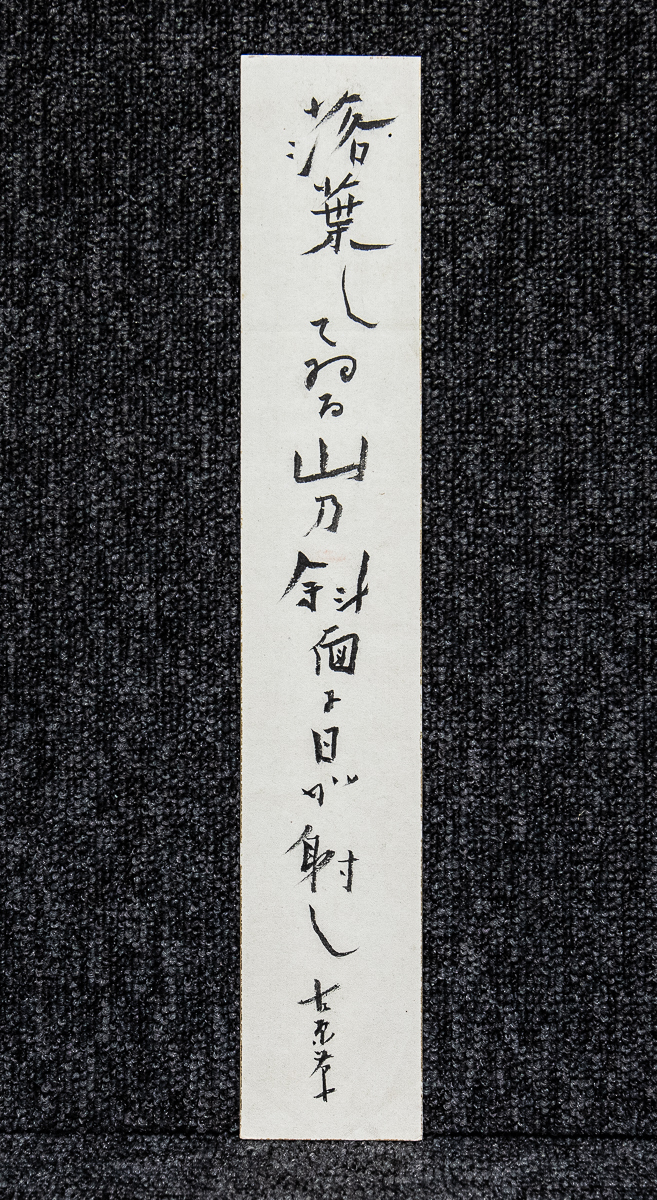 落葉してゐる山乃斜面に日が射し
古原草